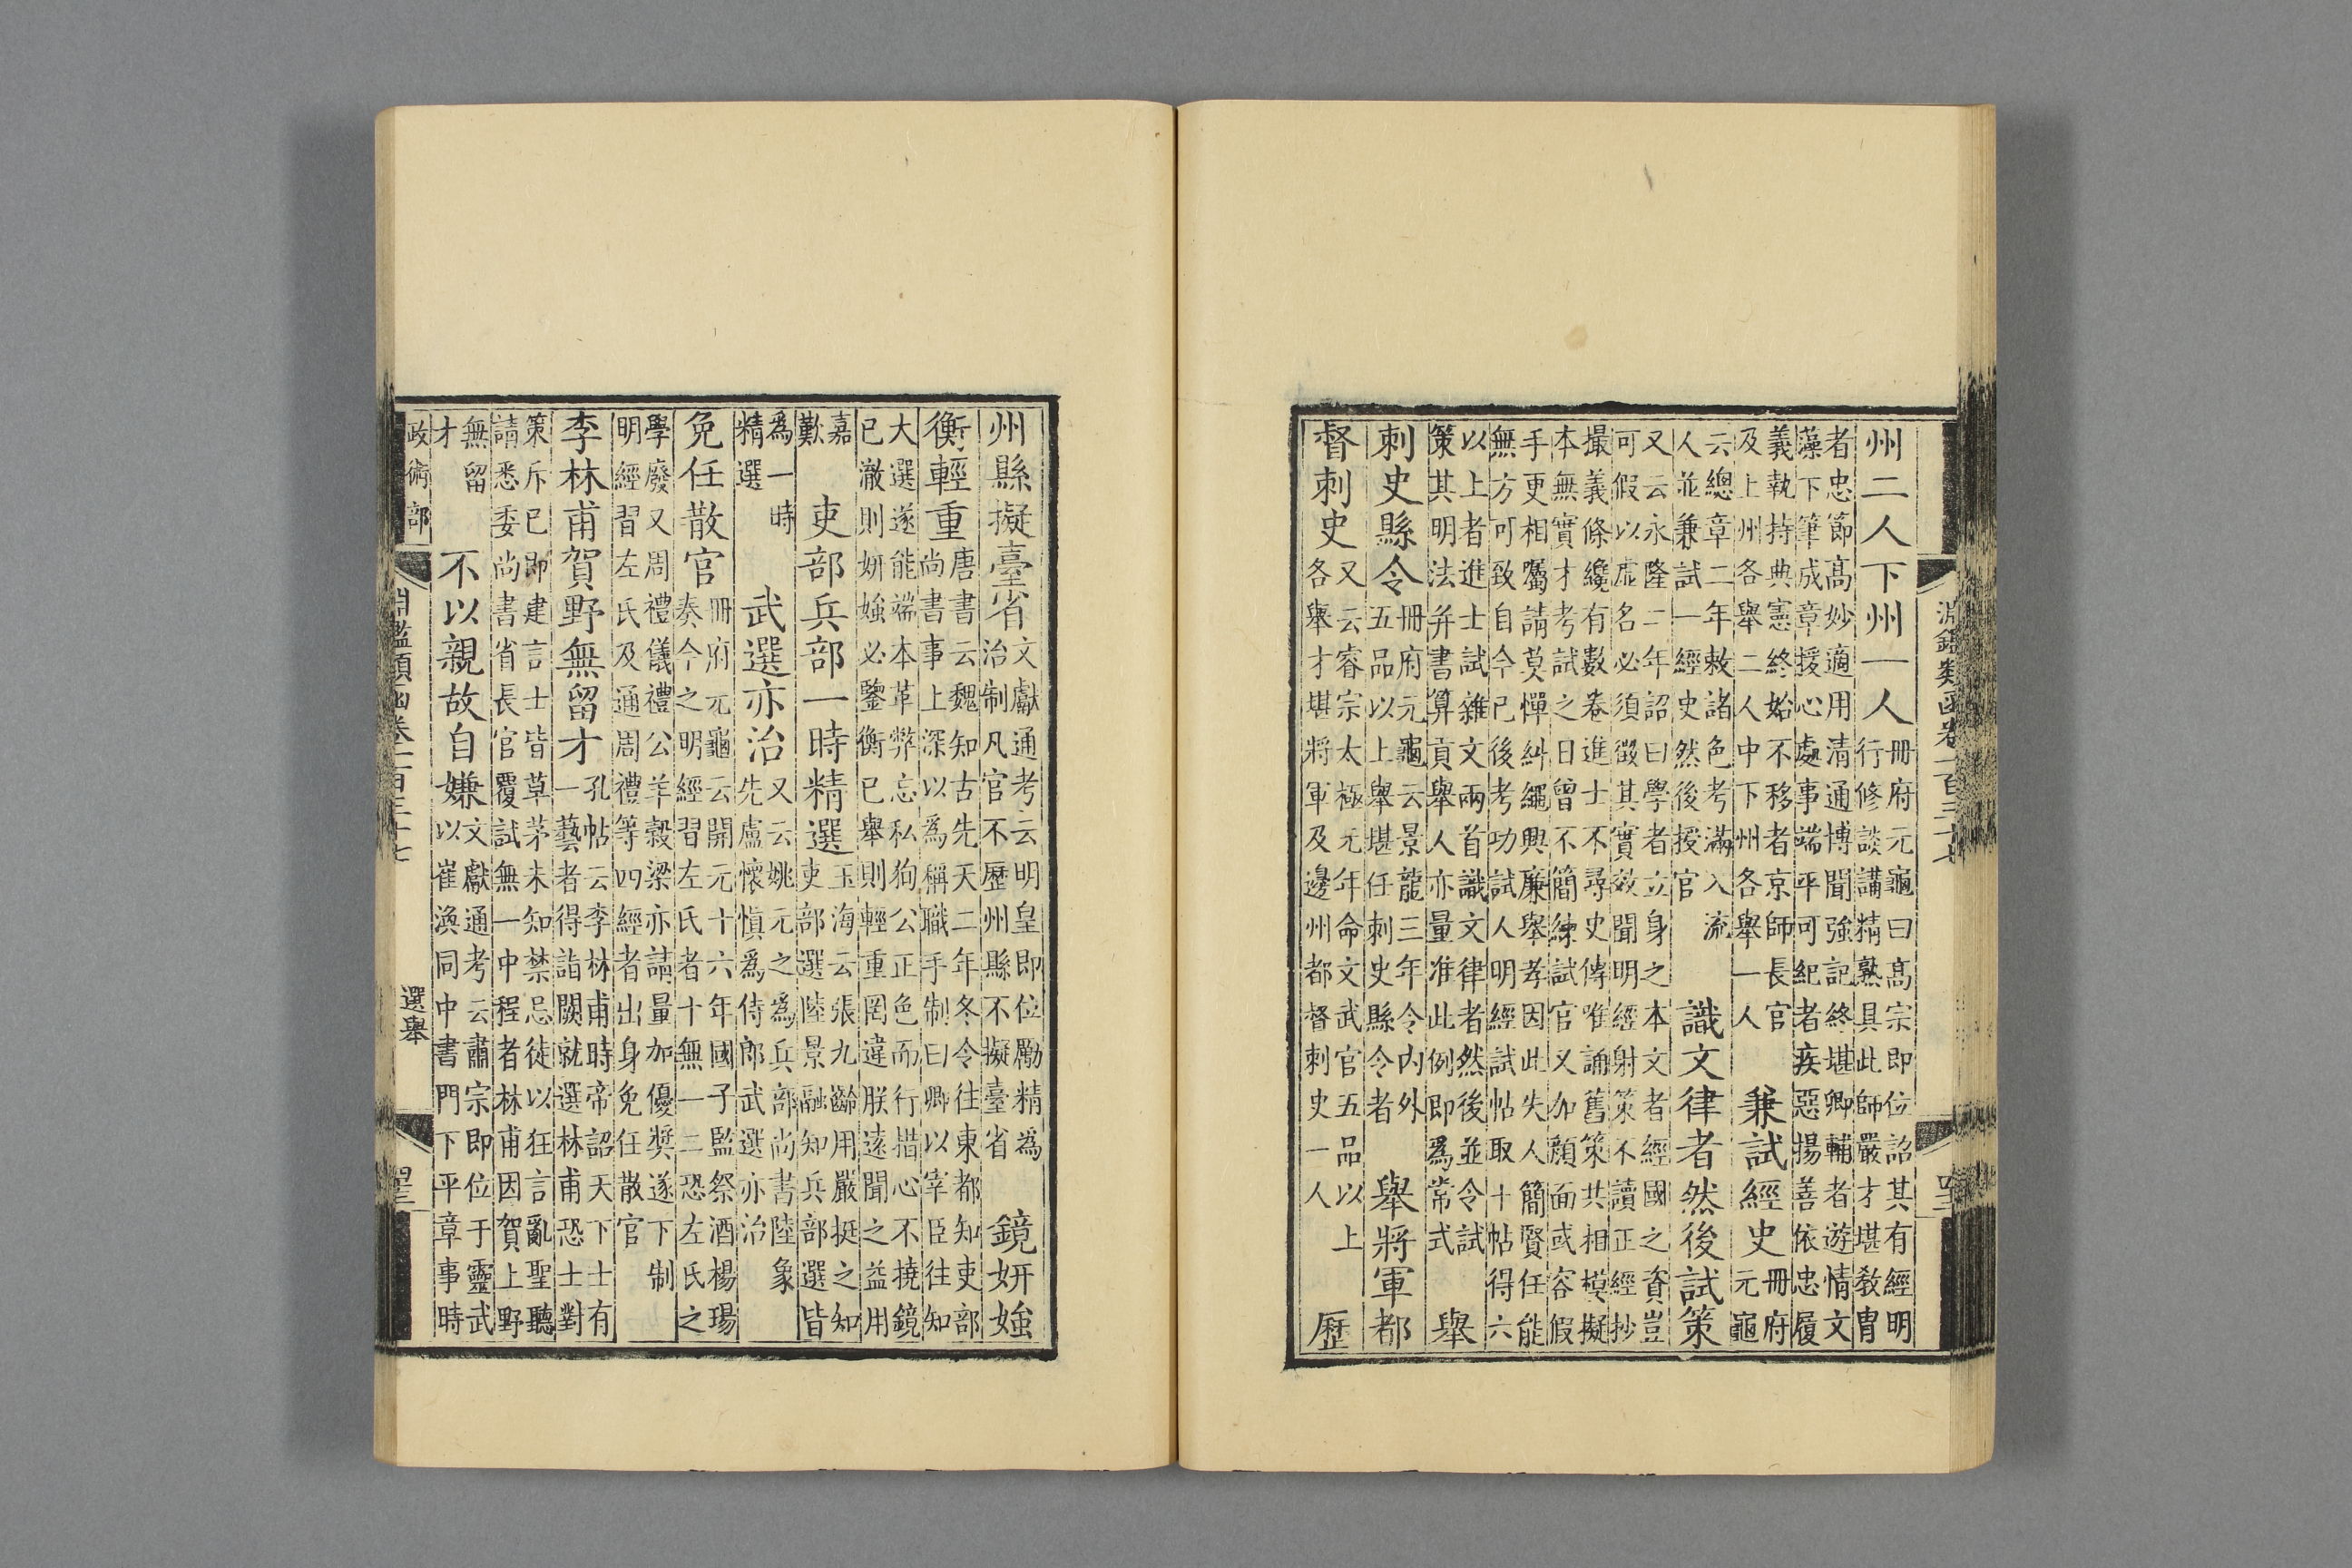 淵鑑類函卷一百三十七
州二人下州一人
冊府元龜曰高宗即位詔其有經明
行修談講精熟具此師嚴才堪教胄
者忠節高妙適用清通博聞強記終堪卿輔者遊情文
藻下筆成章援心處事端平可紀者疾惡揚善依忠履
義執持典憲終始不移者京師長官
及上州各舉二人中下州各舉一人
兼試經史
冊府
元龜
云總章二年敕諸色考滿入流
人並兼試一經史然後授官
識文律者然後試策
又云永隆二年詔曰學者立身之本文者經國之資豈
可假以虛名必須徵其實效聞明經射策不讀正經抄
撮義條纔有數卷進士不尋史傳唯誦舊策共相模擬
本無實才考試之日曾不簡練試官又加顏面或容假
手更相囑請莫憚糾繩興廉舉孝因此失人簡賢任能
無方可致自今已後考功試人明經試帖取十帖得六
以上者進士試雜文兩首識文律者然後並令試
策其明法并書算貢舉人亦量准此例即爲常式
舉
刺史縣令
冊府元龜云景龍三年令內外
五品以上舉堪任刺史縣令者
舉將軍都
督刺史
又云睿宗太極元年命文武官五品以上
各舉才堪將軍及邊州都督刺史一人
歷
州縣擬臺省
文獻通考云明皇即位勵精爲
治制凡官不歷州縣不擬臺省
鏡妍媸
衡輕重
唐書云魏知古先天二年冬令往東都知吏部
尚書事上深以爲稱職手制曰卿以宰臣往知
大選遂能端本革弊忘私狥公正色而行措心不撓鏡
已澈則妍媸必鑒衡已舉則輕重罔違朕遠聞之益用
嘉
歎
吏部兵部一時精選
玉海云張九齡用嚴挺之知
吏部選陸景融知兵部選皆
爲一時
精選
武選亦治
又云姚元之爲兵部尚書陸象
先盧懷慎爲侍郎武選亦治
免任散官
冊府元龜云開元十六年國子監祭酒楊瑒
奏今之明經習左氏者十無一二恐左氏之
學廢又周禮儀禮公羊穀梁亦請量加優奬遂下制
明經習左氏及通周禮等四經者出身免任散官
李林甫賀野無留才
孔帖云李林甫時帝詔天下士有
一藝者得詣闕就選林甫恐士對
策斥已即建言士皆草茅未知禁忌徒以狂言亂聖聽
請悉委尚書省長官覆試無一中程者林甫因賀上野
無留
才
不以親故自嫌
文獻通考云肅宗即位于靈武
以崔渙同中書門下平章事時
政術部
淵鑑類函卷一百三十七
選舉